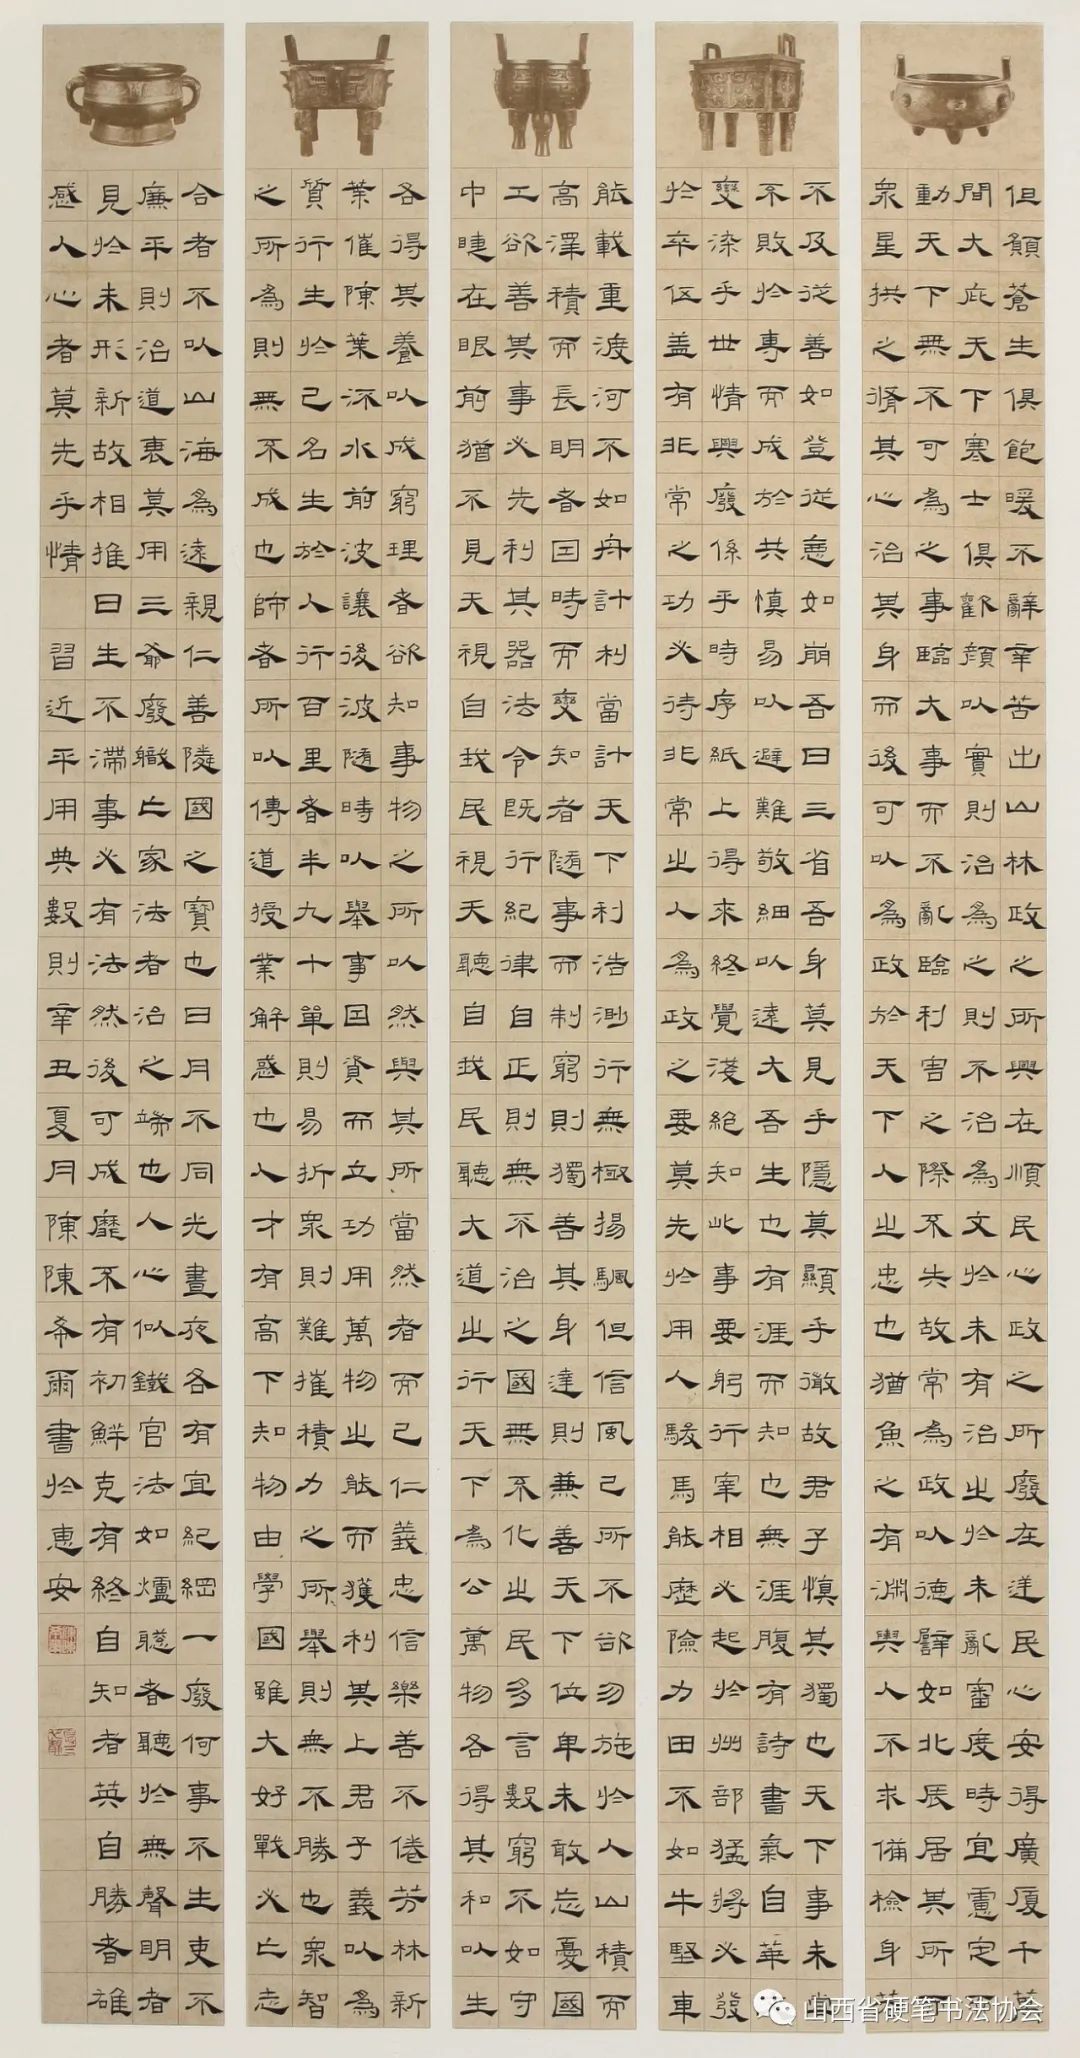 但願蒼生俱飽暖不辭辛苦出山林政之所興在順民心政之所廢在逆民心安得廣厦千萬
間大庇天下寒士俱歡顏以實則治為之則不治為文於未有治之於未亂審度時宜慮定而
動天下無不可為之事臨大事而不亂臨利害之際不失故常為政以德譬如北辰居其所而
衆星拱之脩其心治其身而後可以為政於天下人之忠也猶魚之有淵與人不求備檢身若
不及從善如登從惡如崩吾曰三省吾身莫見乎隱莫顯乎微故君子慎其獨也天下事未
不敗於專而成於共慎易以避難敬細以遠大吾生也有涯而知也無涯腹有詩書氣自華
變染乎世情興廢係乎時序紙上得來終覺淺絕知此事要躬行宰相必起於州部猛將必發
於卒伍蓋有非常之功必待非常之人為政之要莫先於用人駿馬能歷險力田不如牛堅車
能載重渡河不如舟計利當計天下利浩渺行無極揚颿但信風己所不欲勿施於人山積而
高澤積而長明者因時而變知者隨事而制窮則獨善其身達則兼善天下位卑未敢忘憂國
工欲善其事必先利其器法令既行紀律自正則無不治之國無不化之民多言數窮不如守
中睫在眼前猶不見天視自我民視天聽自我民聽大道之行天下為公萬物各得其和以生
各得其養以成窮理者欲知事物之所以然與其所當然者而已仁義忠信樂善不倦芳林新
葉催陳葉流水前波讓後波隨時以舉事因資而立功用萬物之能而獲利其上君子義以為
質行生於己名生於人行百里者半九十單則易折衆則難摧積力之所舉則無不勝也衆智
之所為則無不成也師者所以傳道授業解惑也人才有高下知物由學國雖大好戰必亡志
合者不以山海為遠親仁善隣國之寶也日月不同光晝夜各有宜紀綱一廢何事不生吏不
廉平則治道衰莫用三爺廢職亡家法者治之端也人心似鐵官法如爐聽者聽於無聲明者
見於未形新故相推日生不滯事必有法然後可成靡不有初鮮克有終自知者英自勝者雄
感人心者莫先乎情 習近平用典數則辛丑夏月陳陳希爾書於惠安
山西省硬笔书法协会